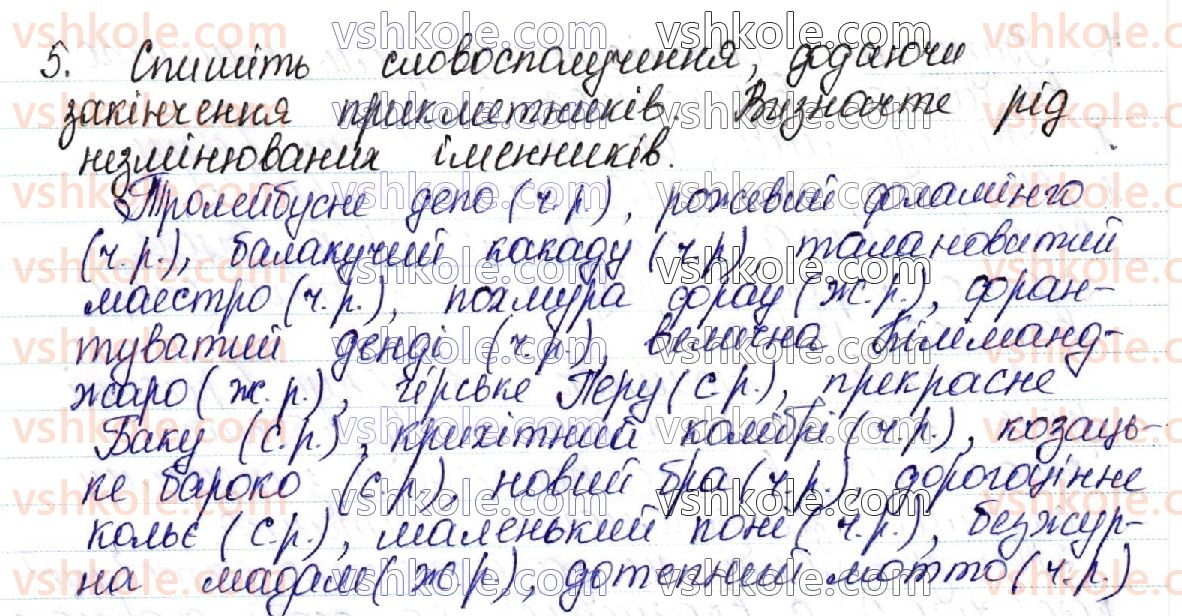 5. Спишіть словосполучення, додаючи
закінчення прикметників. Визначте рід
незмінюваних іменників.
Тролейбусне депо (ч.р.), рожевий фламінго
(ч.р.), балакучий какаду (ч.р), талановитий
маестро (ч.р.), похмура фрау (ж.р.), фран-
туватий денді (ч.р.), велична Кіліманд-
жаро (ж.р.), гірське Перу (с.р.), прекрасне
Баку (с.р.), крихітний колібрі (ч.р.), козаць-
ке бароко (с.р), новий бра (ч.р.), дорогоцінне
кольє (с.р.), маленький поні (ч.р.), безжур-
на мадам (ж.р), дотепний мотто (ч.р.)
vshkole.com